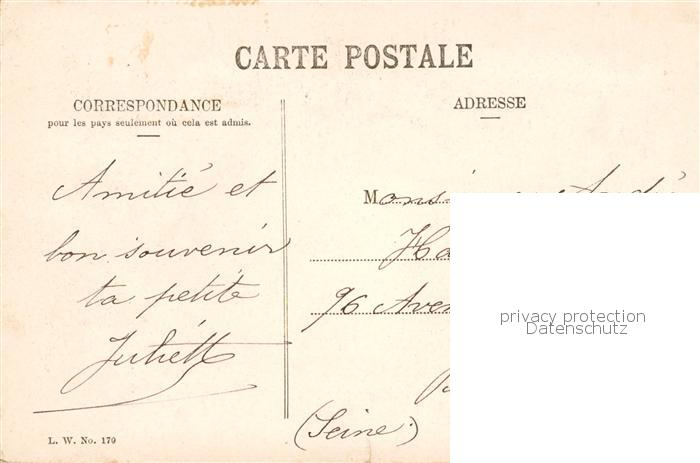 CARTE POSTALE
CORRESPONDANCE
pour les pays seulement où cela est admis.
Amitié et
bon souvenir
ta petite
Juliette
L. W. No. 170
ADRESSE
96
(Seine)
privacy protection
Datenschutz